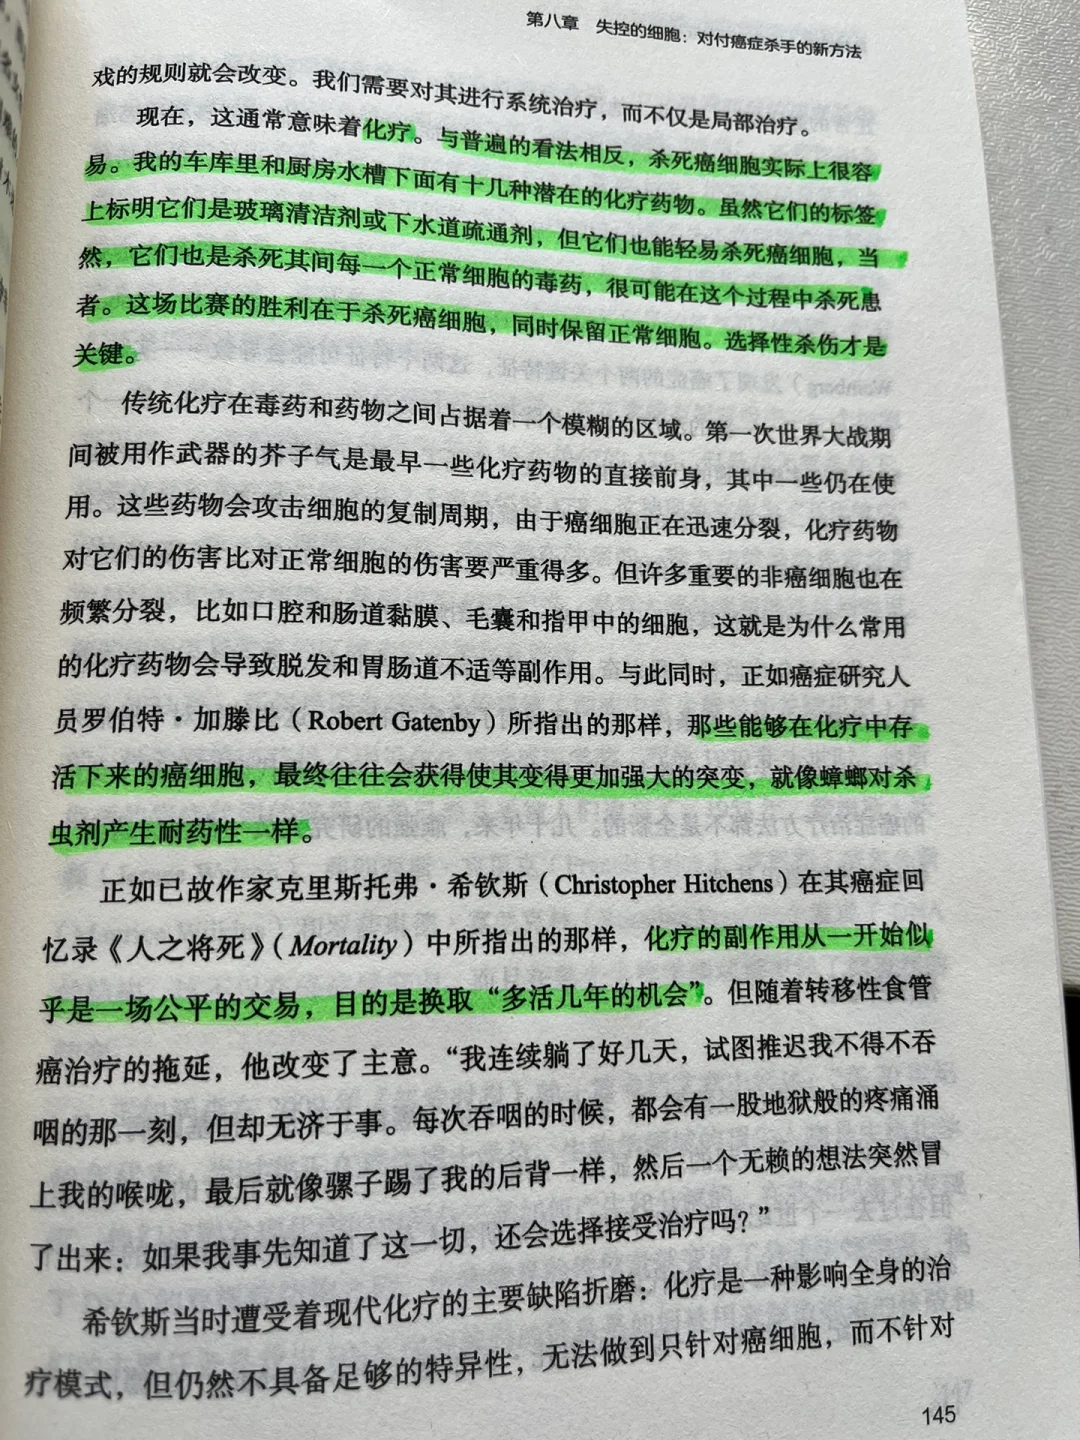 第八章 失控的细胞：对付癌症杀手的新方法
戏的规则就会改变。我们需要对其进行系统治疗，而不仅是局部治疗。
现在，这通常意味着化疗。与普遍的看法相反，杀死癌细胞实际上很容
易。我的车库里和厨房水槽下面有十几种潜在的化疗药物。虽然它们的标签
上标明它们是玻璃清洁剂或下水道疏通剂，但它们也能轻易杀死癌细胞，当
然，它们也是杀死其间每一个正常细胞的毒药，很可能在这个过程中杀死患
者。这场比赛的胜利在于杀死癌细胞，同时保留正常细胞。选择性杀伤才是
关键。
传统化疗在毒药和药物之间占据着一个模糊的区域。第一次世界大战期
间被用作武器的芥子气是最早一些化疗药物的直接前身，其中一些仍在使
用。这些药物会攻击细胞的复制周期，由于癌细胞正在迅速分裂，化疗药物
对它们的伤害比对正常细胞的伤害要严重得多。但许多重要的非癌细胞也在
频繁分裂，比如口腔和肠道黏膜、毛囊和指甲中的细胞，这就是为什么常用
的化疗药物会导致脱发和胃肠道不适等副作用。与此同时，正如癌症研究人
员罗伯特·加滕比（Robert Gatenby）所指出的那样，那些能够在化疗中存
活下来的癌细胞，最终往往会获得使其变得更加强大的突变，就像蟑螂对杀
虫剂产生耐药性一样。
正如已故作家克里斯托弗·希钦斯（Christopher Hitchens）在其癌症回
忆录《人之将死》（Mortality）中所指出的那样，化疗的副作用从一开始似
乎是一场公平的交易，目的是换取“多活几年的机会”。但随着转移性食管
癌治疗的拖延，他改变了主意。“我连续躺了好几天，试图推迟我不得不吞
咽的那一刻，但却无济于事。每次吞咽的时候，都会有一股地狱般的疼痛涌
上我的喉咙，最后就像骡子踢了我的后背一样，然后一个无赖的想法突然冒
了出来：如果我事先知道了这一切，还会选择接受治疗吗？”
希钦斯当时遭受着现代化疗的主要缺陷折磨：化疗是一种影响全身的治
疗模式，但仍然不具备足够的特异性，无法做到只针对癌细胞，而不针对
145